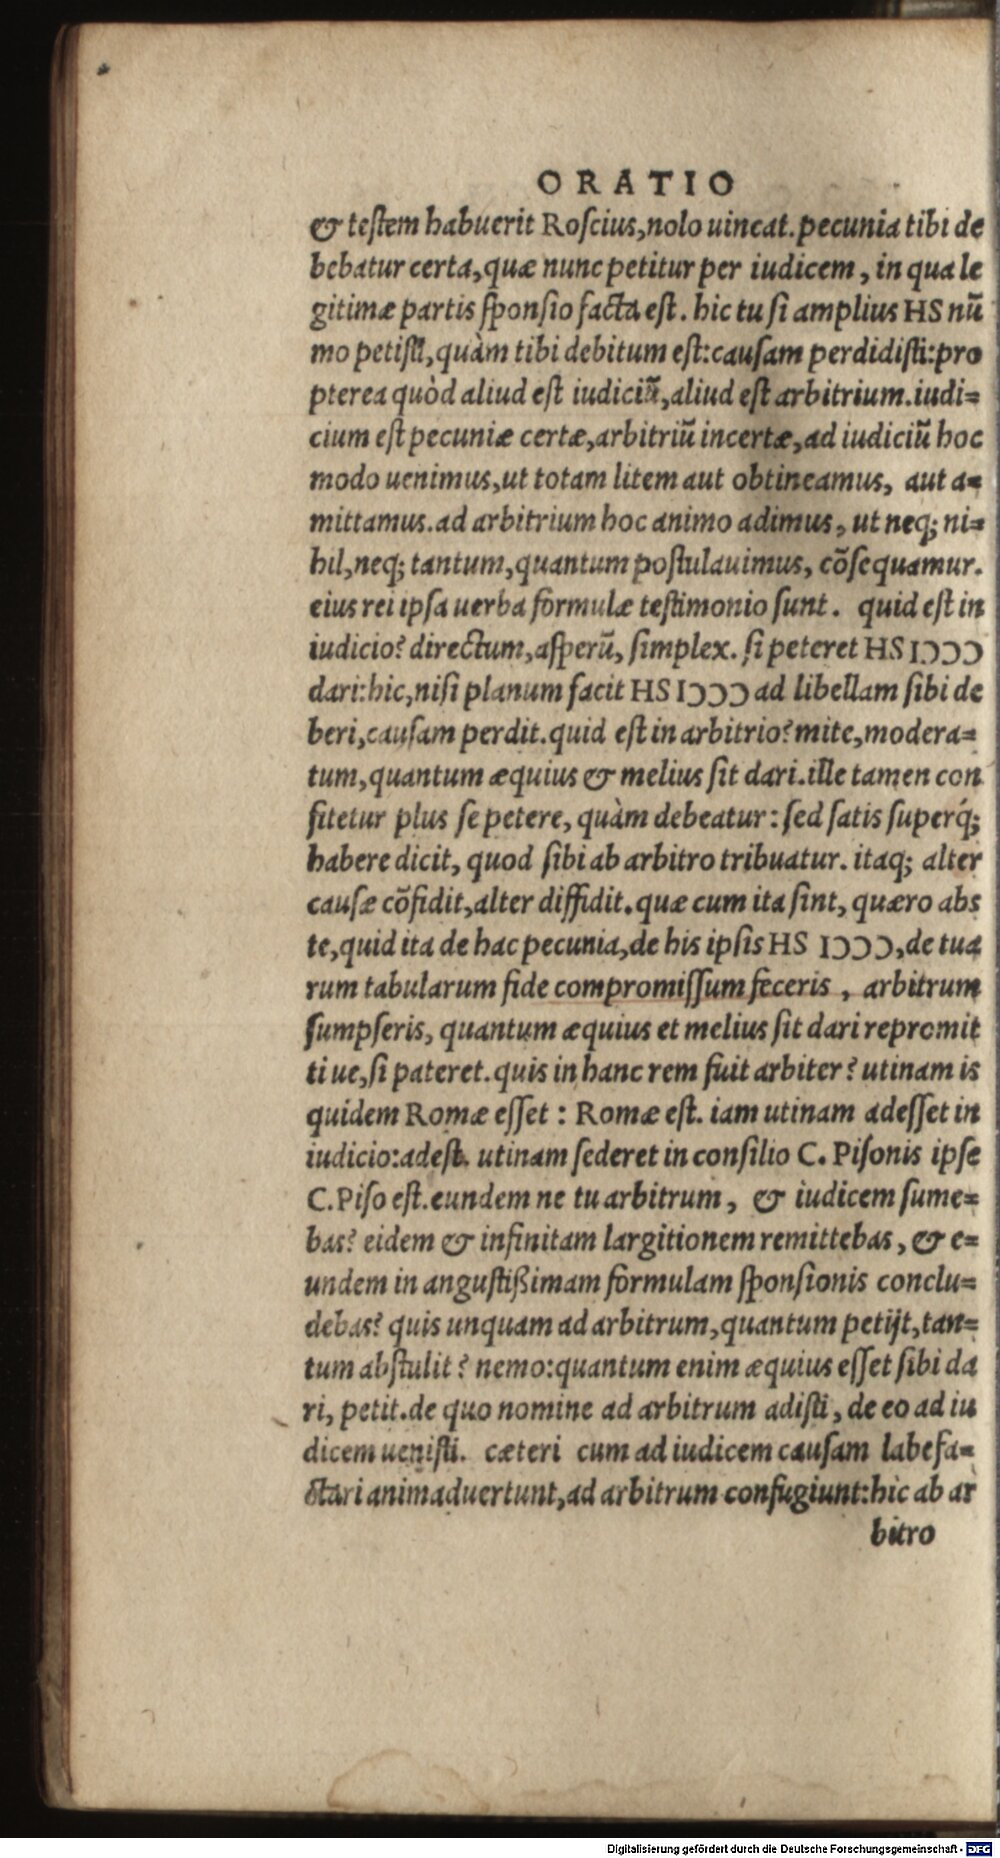 ORATIO
& testem habuerit Roscius,nolo uincat.pecunia tibi de
bebatur certa,quæ nunc petitur per iudicem, in qua le
gitimæ partis sponsio facta est. hic tu si amplius HS nū
mo petisti,quàm tibi debitum est:causam perdidisti:pro
pterea quòd aliud est iudiciū,aliud est arbitrium.iudi=
cium est pecuniæ certæ,arbitriū incertæ,ad iudiciū hoc
modo uenimus,ut totam litem aut obtineamus, aut a=
mittamus.ad arbitrium hoc animo adimus, ut neq; ni=
hil,neq; tantum,quantum postulauimus, cōsequamur.
eius rei ipsa uerba formulæ testimonio sunt. quid est in
iudicio? directum,asperū, simplex. si peteret HS IↃↃↃ
dari:hic,nisi planum facit HS IↃↃↃ ad libellam sibi de
beri,causam perdit.quid est in arbitrio? mite,modera=
tum,quantum æquius & melius sit dari.ille tamen con
fitetur plus se petere, quàm debeatur: sed satis superq́;
habere dicit, quod sibi ab arbitro tribuatur. itaq; alter
causæ cōfidit,alter diffidit.quæ cum ita sint, quæro abs
te,quid ita de hac pecunia,de his ipsis HS IↃↃↃ,de tua
rum tabularum fide compromissum feceris, arbitrum
sumpseris, quantum æquius et melius sit dari repromit
ti ue,si pateret.quis in hanc rem fuit arbiter? utinam is
quidem Romæ esset: Romæ est. iam utinam adesset in
iudicio:adest. utinam sederet in consilio C. Pisonis ipse
C.Piso est.eundem ne tu arbitrum, & iudicem sume=
bas? eidem & infinitam largitionem remittebas, & e=
undem in angustißimam formulam sponsionis conclu=
debas? quis unquam ad arbitrum,quantum petijt,tan=
tum abstulit? nemo:quantum enim æquius esset sibi da
ri, petit.de quo nomine ad arbitrum adisti, de eo ad iu
dicem uenisti. cæteri cum ad iudicem causam labefa=
ctari animaduertunt,ad arbitrum confugiunt:hic ab ar
bitro
Digitalisierung gefördert durch die Deutsche Forschungsgemeinschaft - DFG